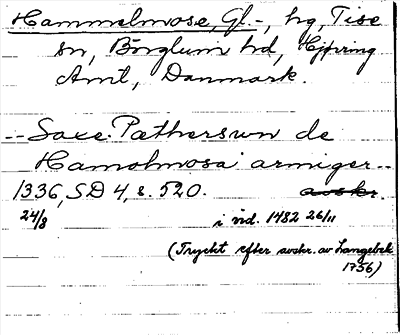 Hammelmose, Gl.-, hg, Tise
sn, Börglum hd, Hjørring
Amt, Danmark.
-- Saxe Pæthersun de
Hamolmosa armiger --
1336, SD 4, s. 520. avskr.
24/8 i vid. 1482 26/11
(Tryckt efter avskr. av Langebek
1756)